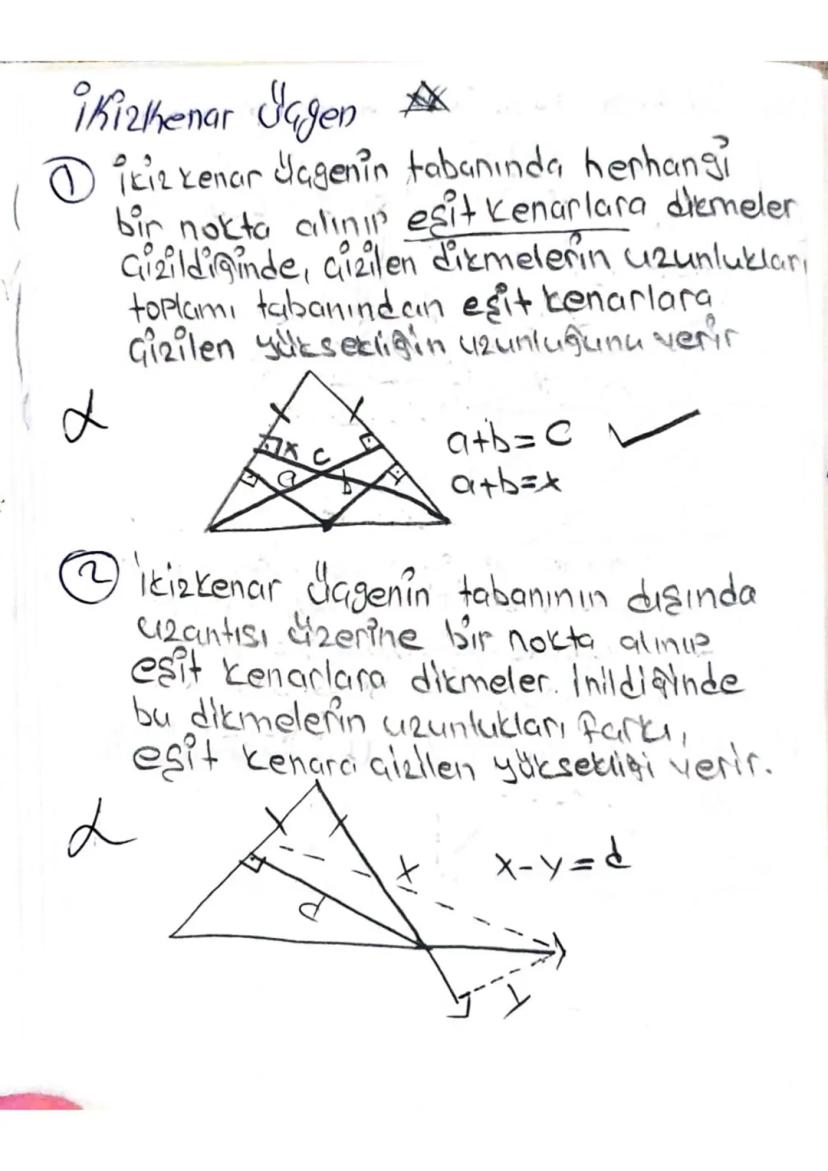 İkizkenar Üçgen
① İkizkenar Üçgenin tabanında herhangi
bir nokta alınıp eşit kenarlara dikmeler
çizildiğinde, çizilen dikmelerin uzunlukları
toplamı tabanından eşit kenarlara
çizilen yüksekliğin uzunluğunu verir
α
x
c
a
b
a+b=c ✓
a+b=x
② İkizkenar Üçgenin tabanının dışında
uzantısı üzerine bir nokta alınıp
eşit kenarlara dikmeler. İnildiğinde
bu dikmelerin uzunlukları farkı,
eşit kenara çizilen yüksekliği verir.
α
x
x-y=d
d
y